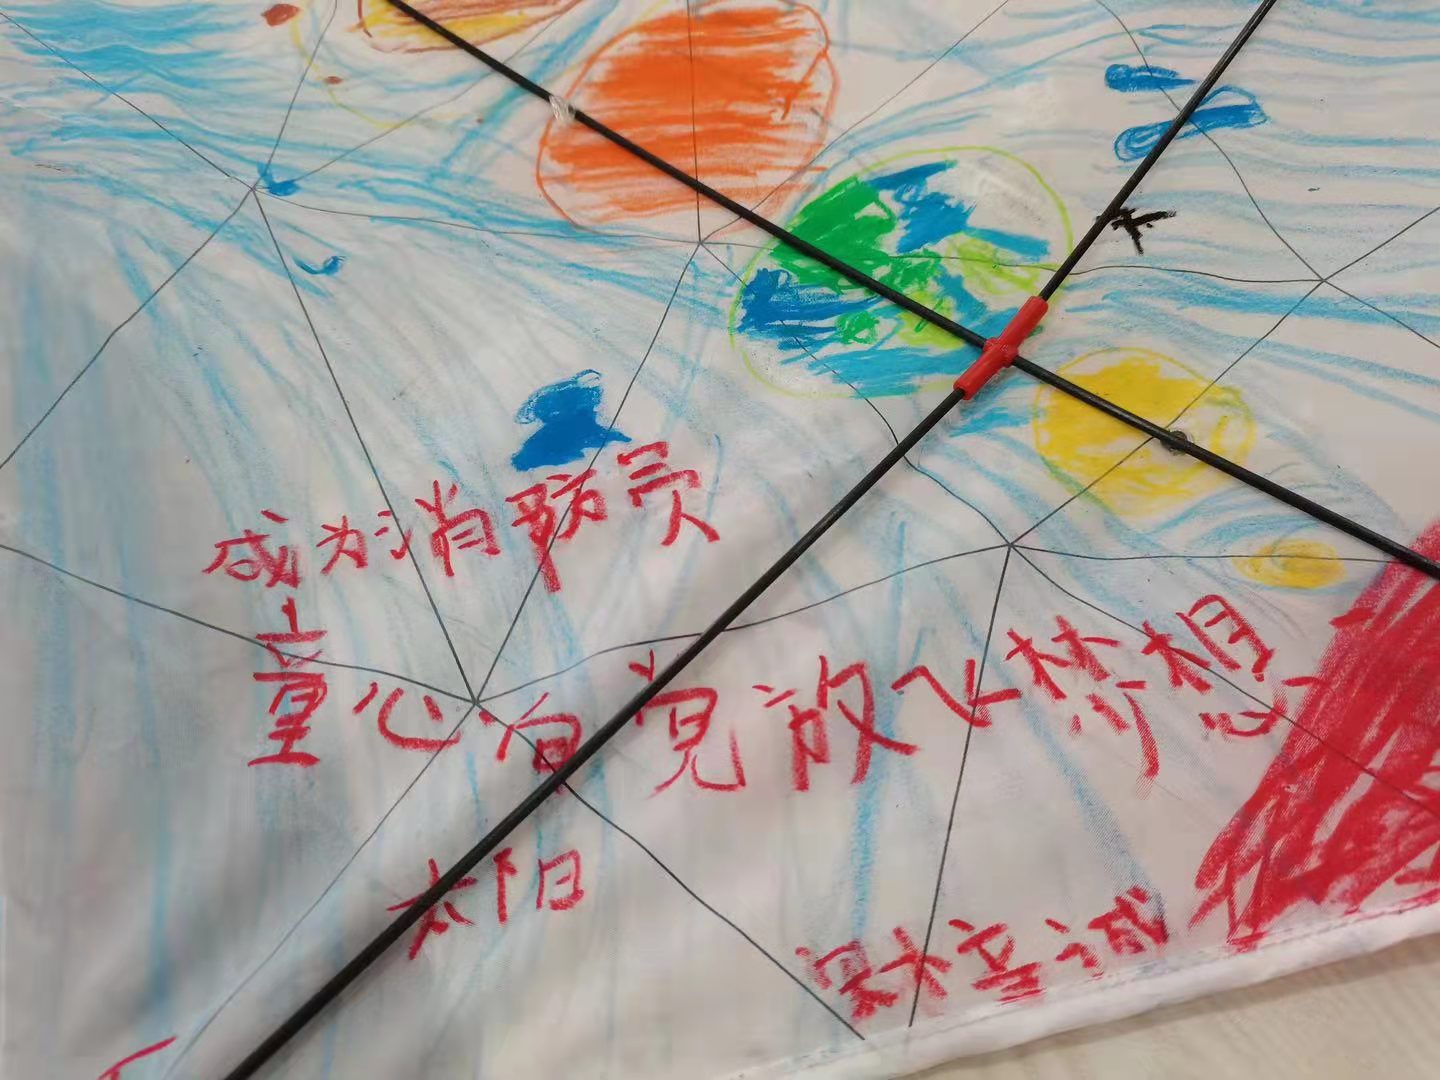 成为消防员
童心向党放飞梦想
太阳
梓诚